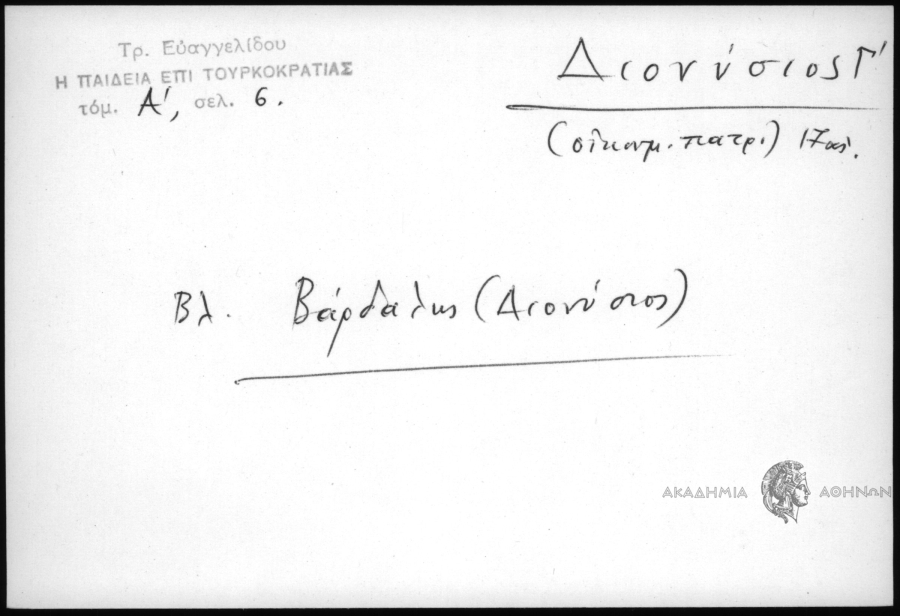 Τρ. Εὐαγγελίδου
Η ΠΑΙΔΕΙΑ ΕΠΙ ΤΟΥΡΚΟΚΡΑΤΙΑΣ
τόμ. Α', σελ. 6.
Διονύσιος Γ'
(οἰκουμ. πατρ.) 17 αἰ.
Βλ. Βάρδαλης (Διονύσιος)
ΑΚΑΔΗΜΙΑ ΑΘΗΝΩΝ